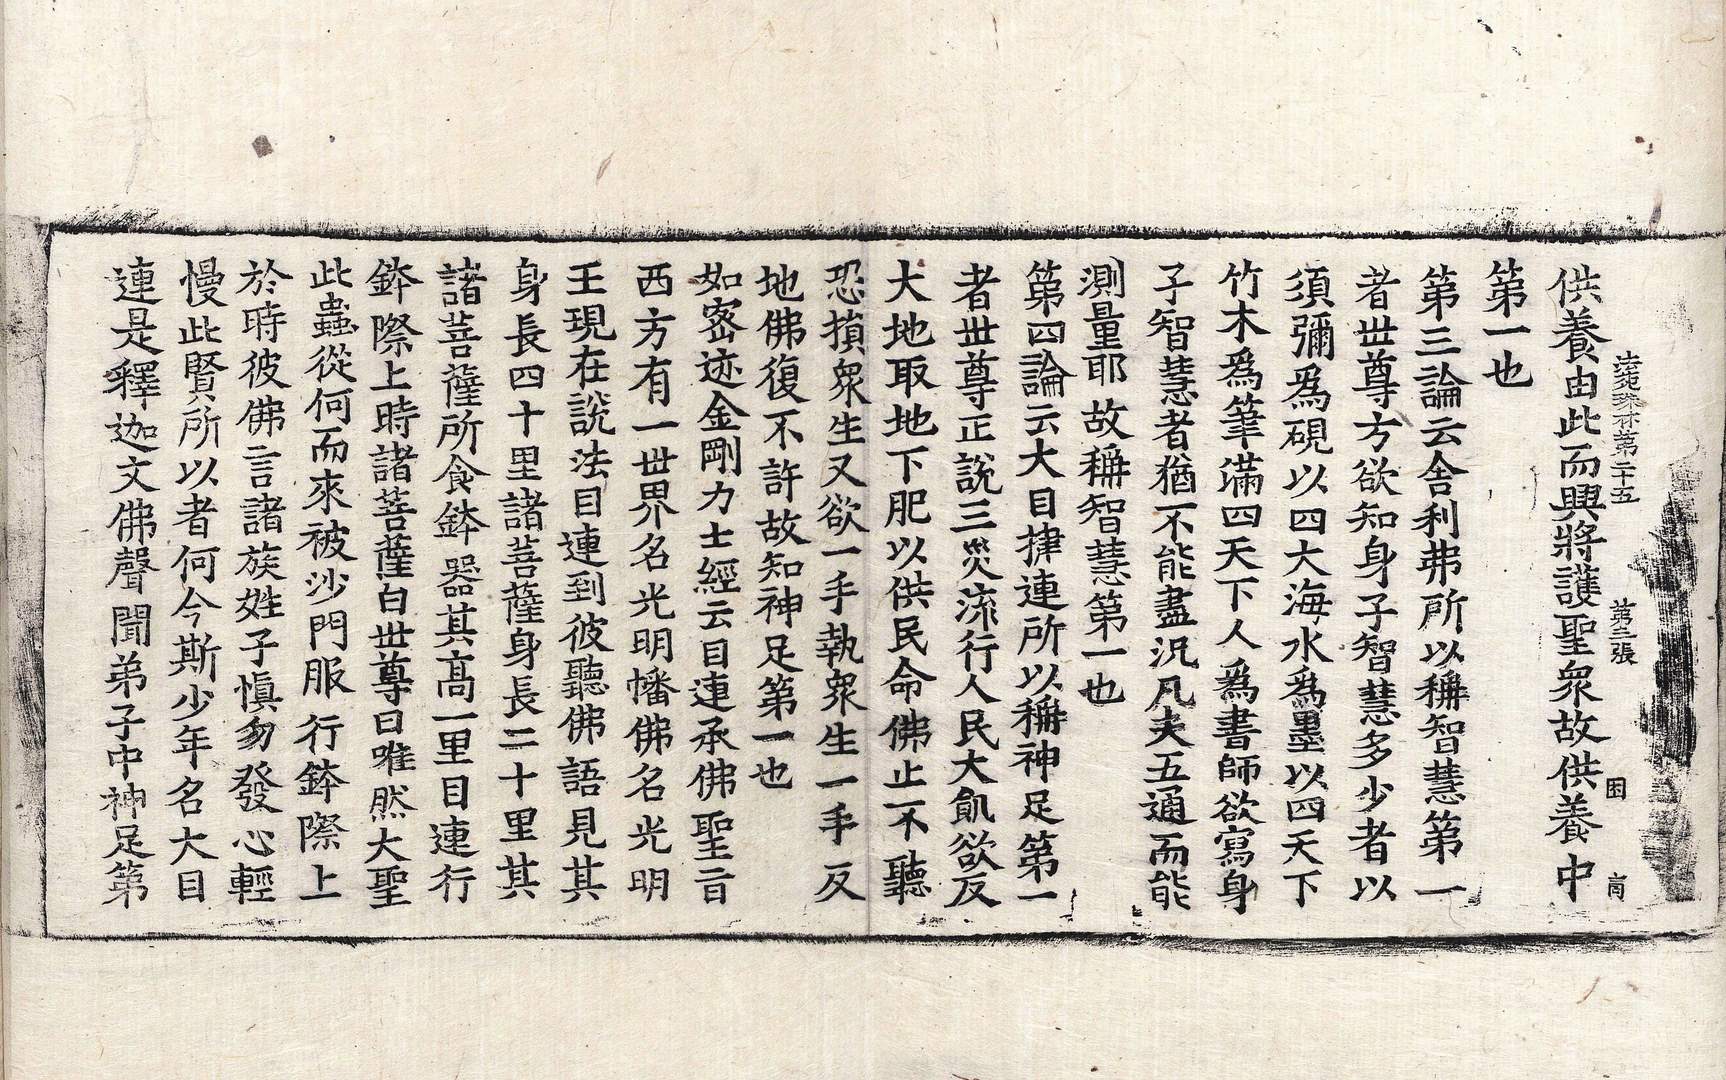 供養由此而興將護聖衆故供養中
法苑珠林第二十五 第三張 囷 啇
第一也
第三論云舍利弗所以稱智慧第一
者世尊方欲知身子智慧多少者以
須彌爲硯以四大海水爲墨以四天下
竹木爲筆滿四天下人爲書師欲寫身
子智慧者猶不能盡況凡夫五通而能
測量耶故稱智慧第一也
第四論云大目揵連所以稱神足第一
者世尊正說三災流行人民大飢欲反
大地取地下肥以供民命佛止不聽
恐損衆生又欲一手執衆生一手反
地佛復不許故知神足第一也
如密迹金剛力士經云目連承佛聖旨
西方有一世界名光明幡佛名光明
王現在說法目連到彼聽佛語見其
身長四十里諸菩薩身長二十里其
諸菩薩所食鉢器其高一里目連行
鉢際上時諸菩薩白世尊曰唯然大聖
此蟲從何而來被沙門服行鉢際上
於時彼佛言諸族姓子愼勿發心輕
慢此賢所以者何今斯少年名大目
連是釋迦文佛聲聞弟子中神足第